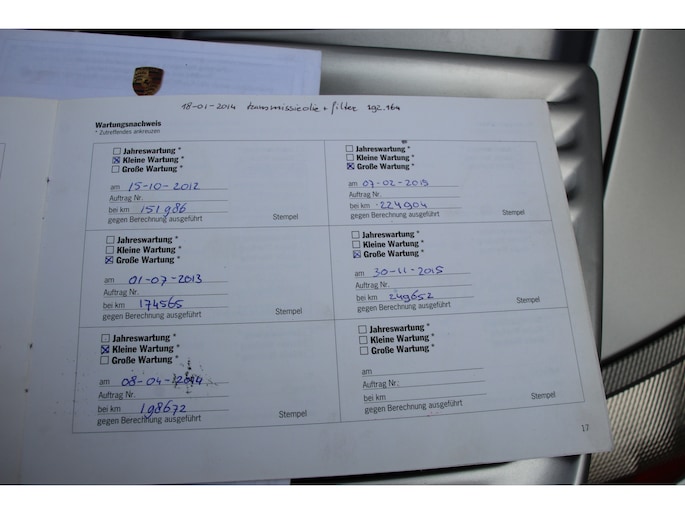 18-01-2014 transmissieolie + filter 192.164
Wartungsnachweis
* Zutreffendes ankreuzen
Jahreswartung *
Kleine Wartung *
Große Wartung *
am 15-10-2012
Auftrag Nr.
bei km 151986
gegen Berechnung ausgeführt Stempel
Jahreswartung *
Kleine Wartung *
Große Wartung *
am 01-07-2013
Auftrag Nr.
bei km 174565
gegen Berechnung ausgeführt Stempel
Jahreswartung *
Kleine Wartung *
Große Wartung *
am 08-04-2014
Auftrag Nr.
bei km 198672
gegen Berechnung ausgeführt Stempel
Jahreswartung *
Kleine Wartung *
Große Wartung *
am 07-02-2015
Auftrag Nr.
bei km 224904
gegen Berechnung ausgeführt Stempel
Jahreswartung *
Kleine Wartung *
Große Wartung *
am 30-11-2015
Auftrag Nr.
bei km 249652
gegen Berechnung ausgeführt Stempel
Jahreswartung *
Kleine Wartung *
Große Wartung *
am
Auftrag Nr.:
bei km
gegen Berechnung ausgeführt Stempel
17